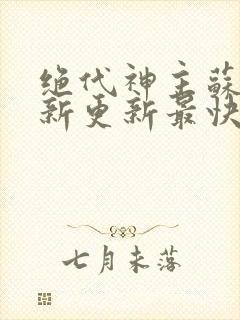 绝代神主蘇
新更新最快
七月未落